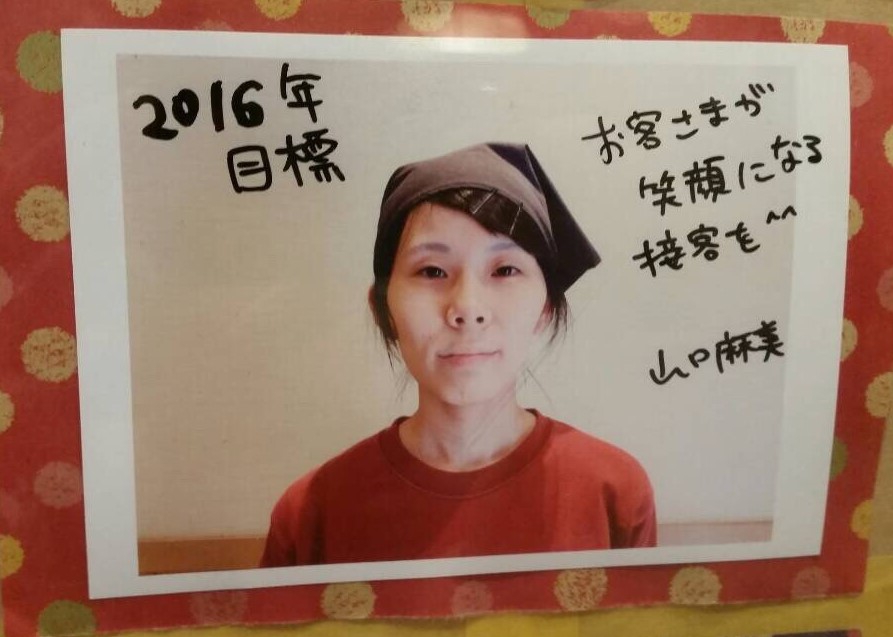 2016年
目標
お客さまが
笑顔になる
接客を^^
山口麻美